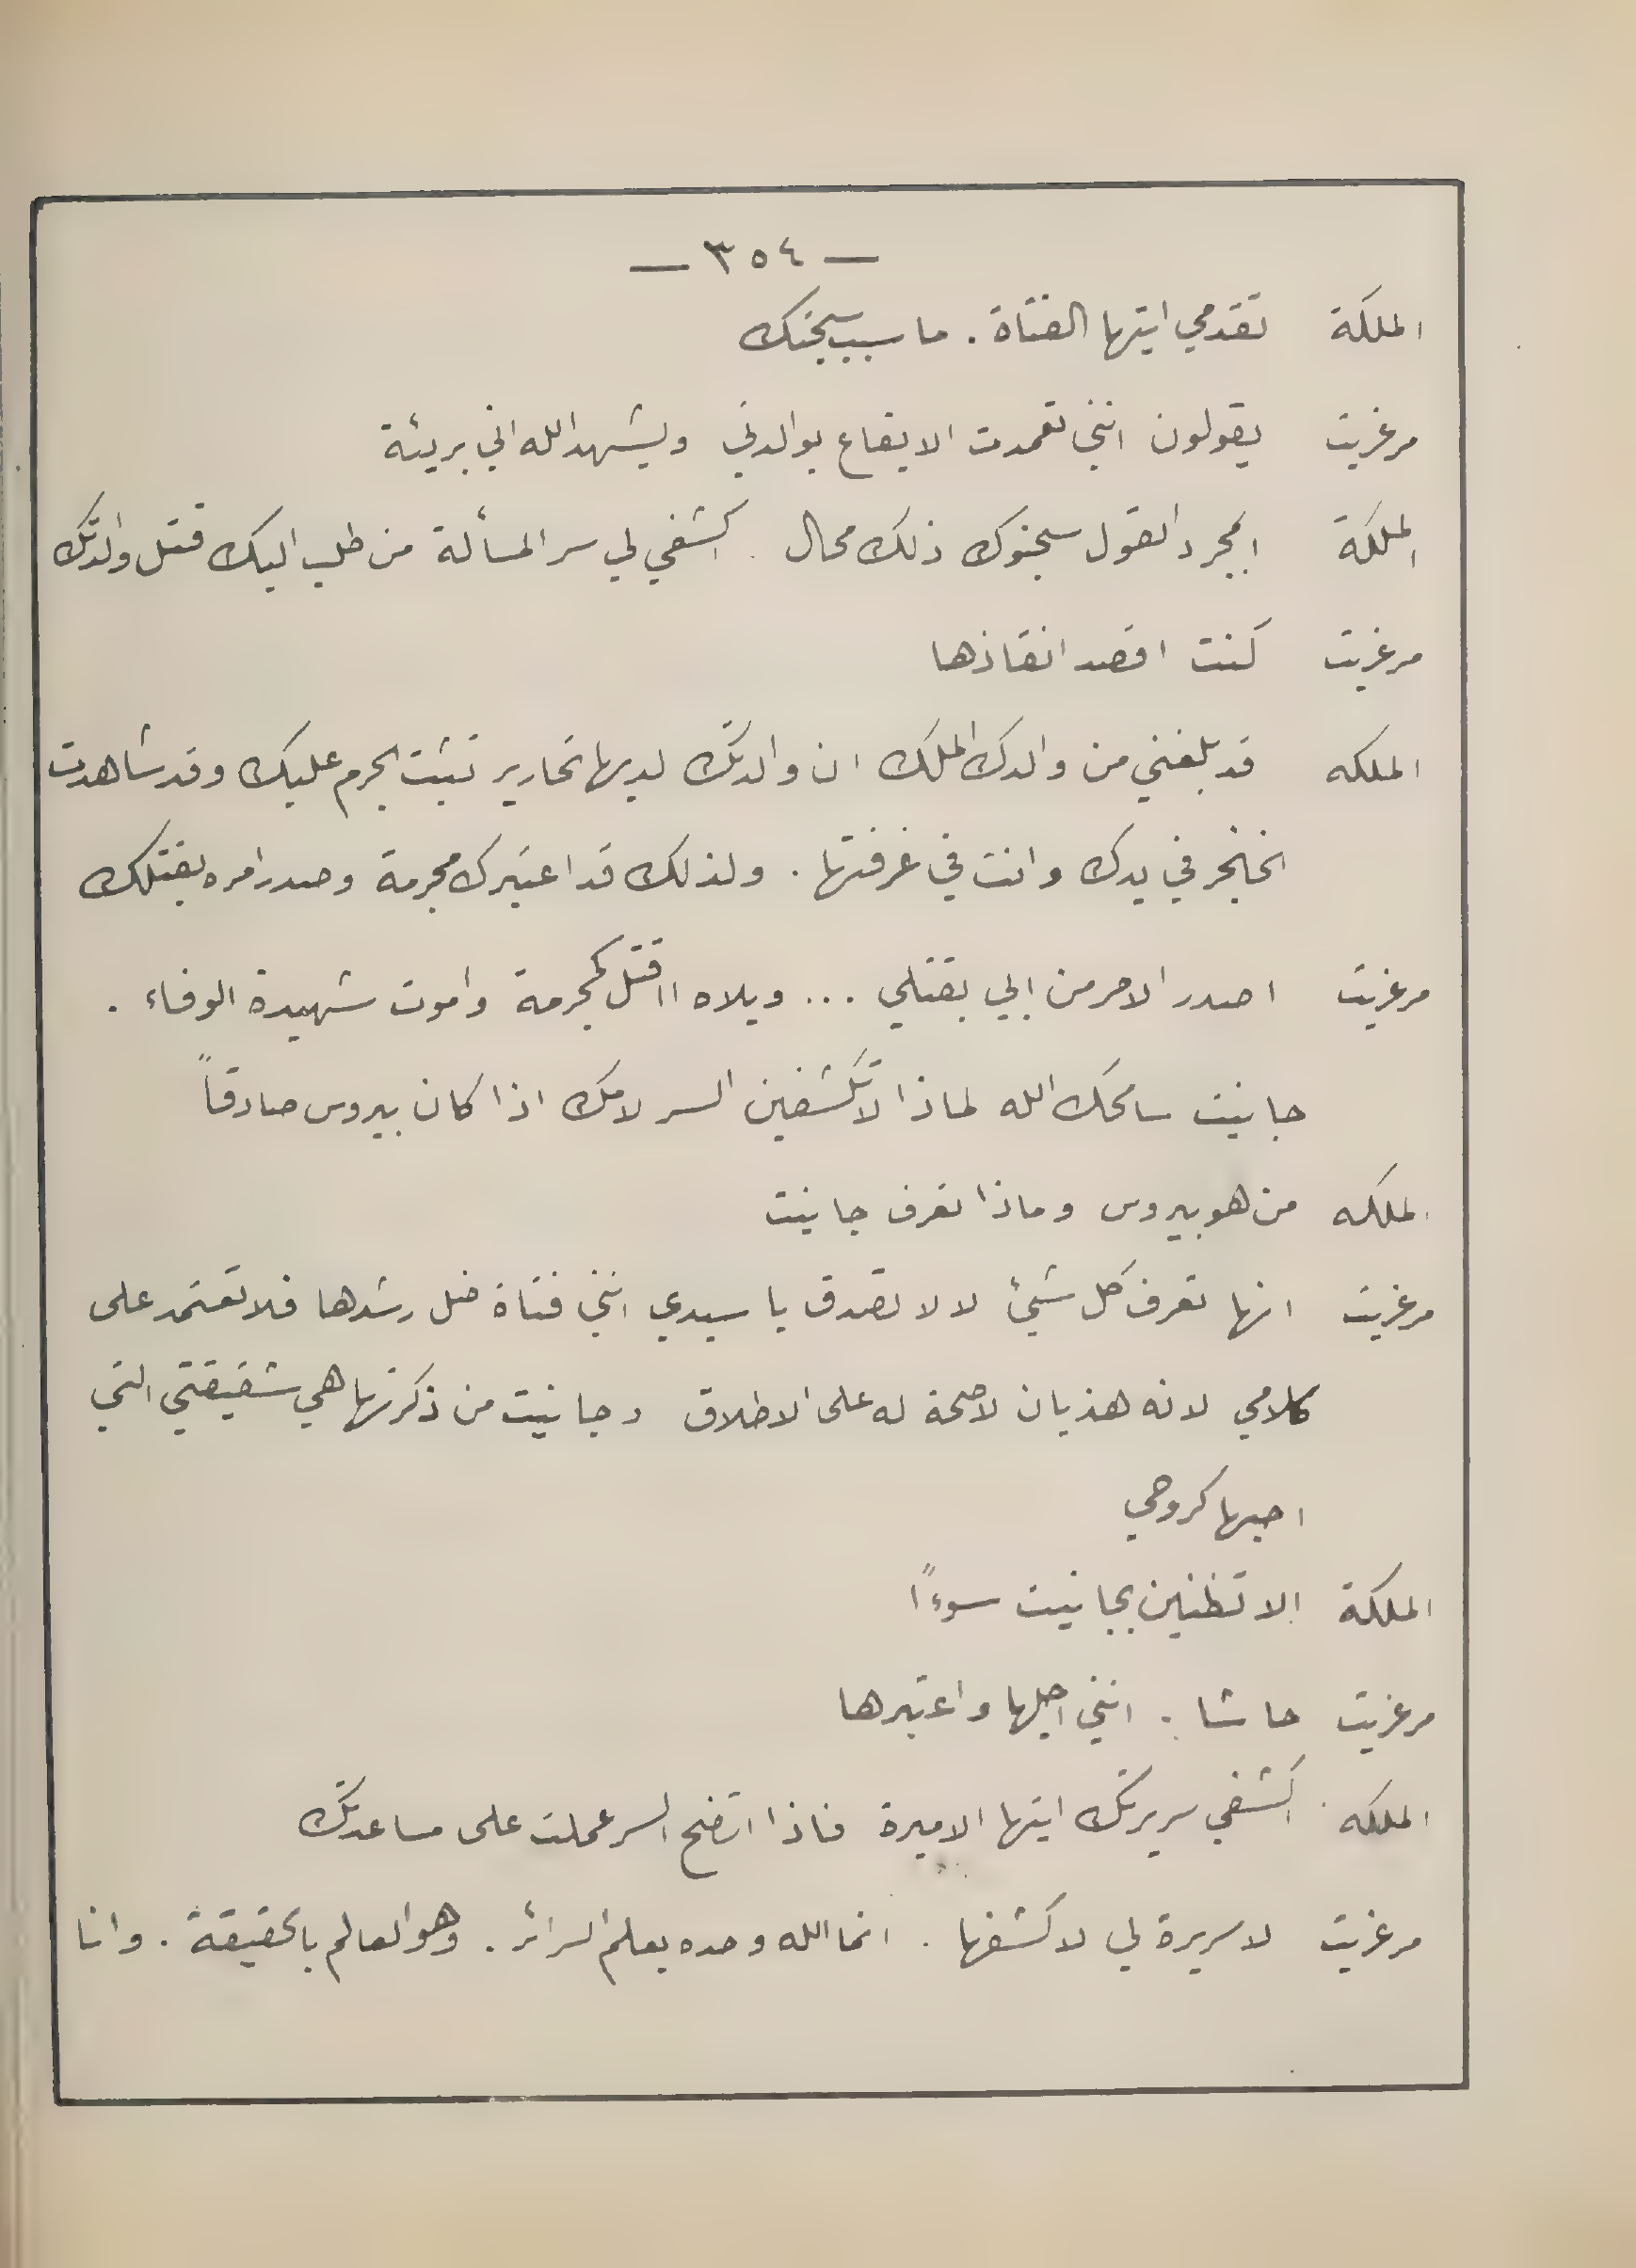 — ٣٥٤ —
الملكة تقدمي ايتها الفتاة . ما سبب سجنك
مرغريت يقولون انني تعمدت الايقاع بوالدتي ويشهد الله اني بريئة
الملكة ابمجرد القول سجنوك ذلك محال . اكشفي لي سر المسألة من طلب اليك قتل والدتك
مرغريت كنت اقصد انقاذها
الملكه قد بلغني من والدك الملك ان والدتك لديها تحارير تثبت الجرم عليك وقد شاهدت
الخنجر في يدك وانت في غرفتها . ولذلك قد اعتبرك مجرمة وصدر امره بقتلك
مرغريت اصدر الامر من ابي بقتلي ... ويلاه ااقتل كمجرمة واموت شهيدة الوفاء .
جانيت سامحك الله لماذا لا تكشفين السر لامك اذا كان بيروس صادقاً
الملكه من هو بيروس وماذا تعرف جانيت
مرغريت انها تعرف كل شيئ لا لا تصدق يا سيدي انني فتاة ضل رشدها فلا تعتمد على
كلامي لانه هذيان لا صحة له على الاطلاق وجانيت من ذكرتها هي شقيقتي التي
احبها كروحي
الملكة الا تظنين بجانيت سوءًا
مرغريت حاشا . انني اجلها واعتبرها
الملكه اكشفي سريرتك ايتها الاميرة فاذا اتضح السر عملت على مساعدتك
مرغريت لا سريرة لي لاكشفها . انما الله وحده يعلم السرائر . وهو العالم بالحقيقة . وانا